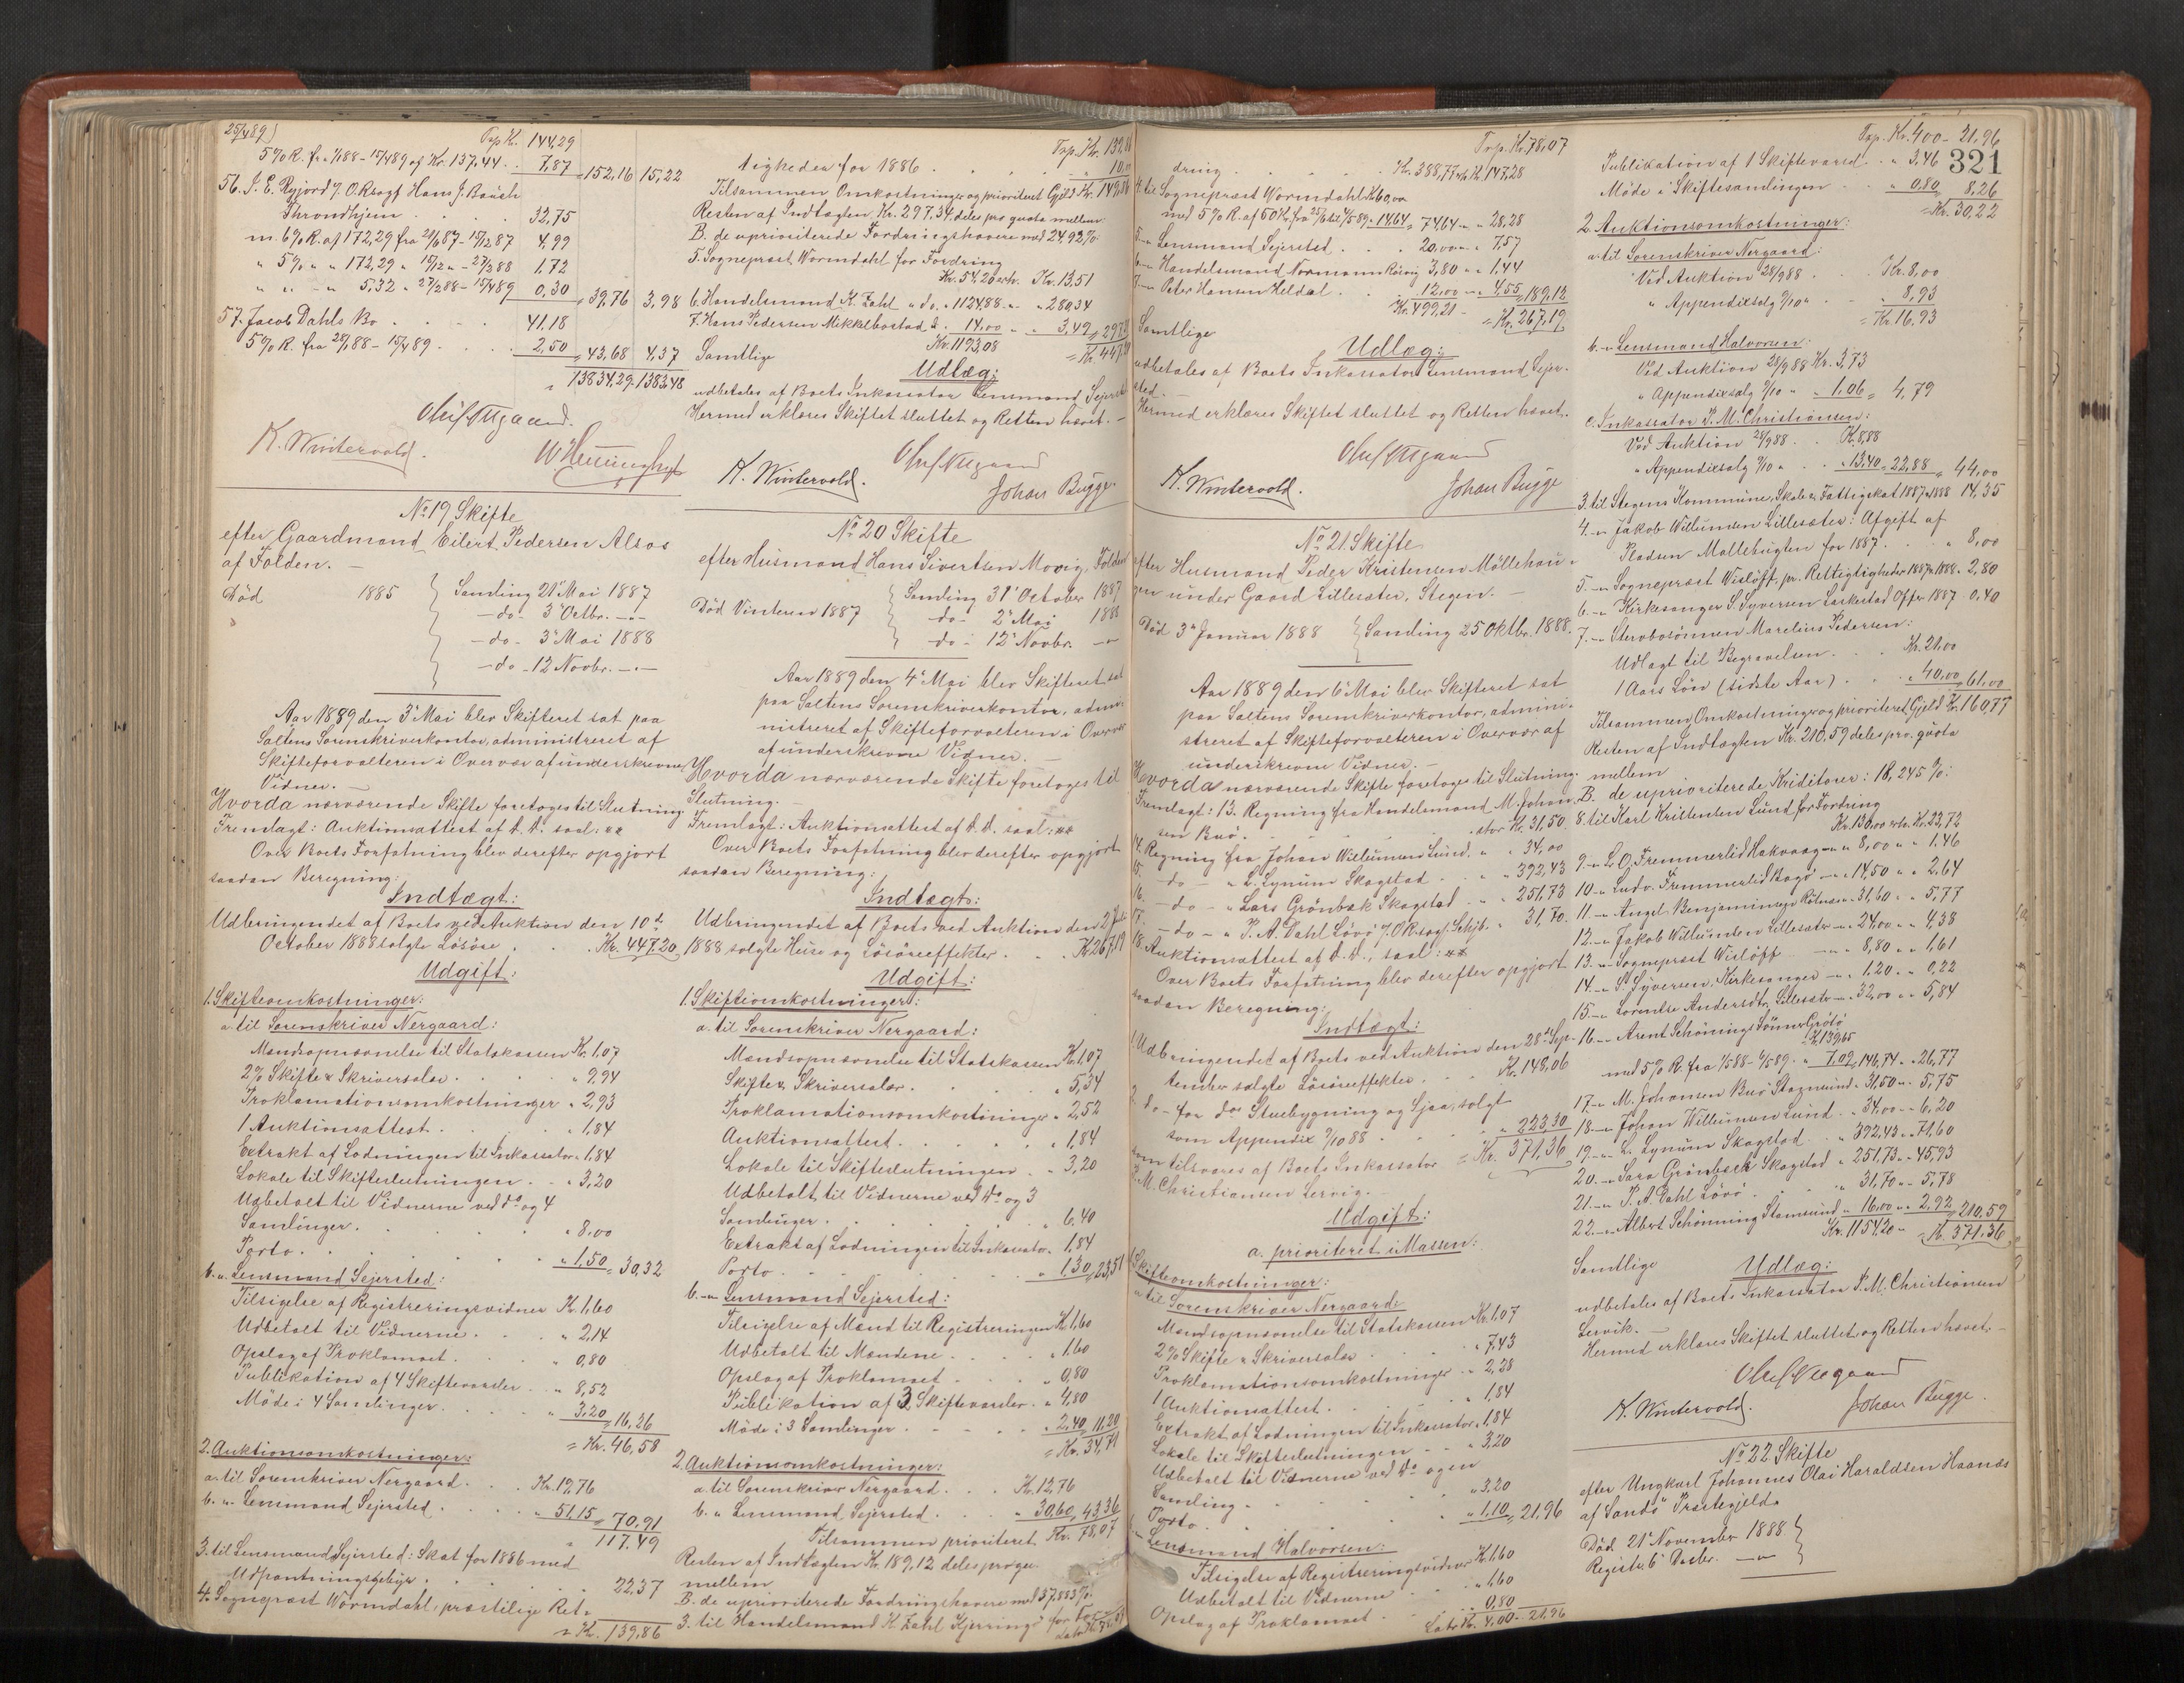 25/4 89)
Trp Kr. 144,29
5% R. fra 1/1 88 - 15/4 89 af Kr. 137,44 . . 7,87 = 152,16 15,22
56. J. E. Ryjord v. O.Rsagf. Hans J. Bauck
Throndhjem . . . 32,75
m. 6% R. af 172,29 fra 21/6 87 - 15/12 87 4,99
" 5% " " 172,29 " 15/12 " - 27/2 88 1,72
" " - " 5,32 " 27/2 88 - 15/4 89 0,30 = 39,76 3,98
57. Jacob Dahls Bo . . . 41,18
5% R. fra 28/1 88 - 15/4 89 . . . 2,50 = 43,68 4,37
= 13834,29 1383,48
Oluf Nergaard.
K. Wintervold.
No 19 Skifte
efter Gaardmand Eilert Pedersen Alsos
af Folden. —
Død 1885
Samling 21' Mai 1887
— do — 3' Octbr. — " —
— do — 3' Mai 1888
— do — 12 Novbr. — " —
Aar 1889 den 3' Mai blev Skifteret sat paa
Saltens Sorenskriverkontor, administreret af
Skifteforvalteren i Overvær af underskrevne
Vidner. —
Hvorda nærværende Skifte foretoges til Slutning.
Fremlagt: Auktionsattest af D. D. saal: **
Over Boets Forfatning blev derefter opgjort
saadan Beregning:
Indtægt:
Udbringendet af Boets ved Auktion den 10de
October 1888 solgte Løsøre . . . Kr. 447,20
Udgift:
1. Skifteomkostninger:
a. til Sorenskriver Nergaard:
Mandsopnævnelse til Statskassen Kr. 1,07
2% Skifte & Skriversalær . . . " 9,94
Proklamationsomkostninger " 2,93
1 Auktionsattest . . . " 1,84
Extrakt af Lodningen til Inkassator " 1,84
Lokale til Skifteslutningen . . " 3,20
Udbetalt til Vidnerne ved do og 4
Samlinger . . . " 8,00
Porto . . . " 1,50 = 30,32
b. " Lensmand Sejersted:
Tilsigelse af Registreringsvidner Kr. 1,60
Udbetalt til Vidnerne . . . " 2,14
Opslag af Proklamaet . . . " 0,80
Publikation af 4 Skiftevarsler . . " 8,52
Møde i 4 Samlinger . . . " 3,20 = 16,26
= Kr. 46,58
2. Auktionsomkostninger:
a. til Sorenskriver Nergaard . . . Kr. 19,76
b. " Lensmand Sejersted . . . " 51,15 = 70,91
" 117,49
3. til Lensmand Sejersted: Skat for 1886 med
Udpantningsgebyr . . . 22,37
4. " Sognepræst Wormdahl, præstelige Ret=
= Kr. 139,86
Trp. Kr. 139,86
tigheder for 1886 . . . 10,00
Tilsammen Omkostninger og prioriteret Gjeld Kr. 149,86
Resten af Indtægten Kr. 297,34 deles pro quota mellem
B. de uprioriterede Fordringshavere med 24,92%:
5. Sognepræst Wormdahl for Fordring
Kr. 54,20 erh. Kr. 13,51
6. Handelsmand K. Zahl " do. " 1124,88 " " 280,34
7. Hans Pedersen Mikkelbostad d. " 14,00 " " 3,49 = 297,34
Kr. 1193,08 = Kr. 447,20
Samtlige
Udlæg:
udbetales af Boets Inkassator Lensmand Sejersted
Hermed erklæres Skiftet sluttet og Retten hævet. —
Oluf Nergaard
K. Wintervold.
Johan Bugge.
No 20 Skifte
efter Husmand Hans Sivertsen Movig, Folden
Død Vinteren 1887
Samling 31' October 1887
do — 2' Mai 1888
do — 12' Novbr. — " —
Aar 1889 den 4' Mai blev Skifteret sat
paa Saltens Sorenskriverkontor, admi-
nistreret af Skifteforvalteren i Overvær
af underskrevne Vidner. —
Hvorda nærværende Skifte foretoges til
Slutning. —
Fremlagt: Auktionsattest af D. D. saal: **
Over Boets Forfatning blev derefter opgjort
saadan Beregning:
Indtægt:
Udbringendet af Boets ved Auktion den 2/
1888 solgte Huse og Løsøreeffekter . . . Kr. 267,19
Udgift:
1. Skifteomkostninger:
a. til Sorenskriver Nergaard:
Mandsopnævnelse til Statskassen Kr. 1,07
Skifte & Skriversalær . . . " 5,34
Proklamationsomkostninger " 2,52
Auktionsattest . . . " 1,84
Lokale til Skifteslutningen . . " 3,20
Udbetalt til Vidnerne ved do og 3
Samlinger . . . " 6,40
Extrakt af Lodningen til Inkassator " 1,84
Porto . . . " 1,30 = 23,51
b. — " Lensmand Sejersted:
Tilsigelse af Mænd til Registreringen Kr. 1,60
Udbetalt til Mændene . . . " 1,60
Opslag af Proklamaet . . . " 0,80
Publikation af 3 Skiftevarsler . . " 4,80
Møde i 3 Samlinger . . . " 2,40 11,20
= Kr. 34,71
2. Auktionsomkostninger:
a. til Sorenskriver Nergaard . . . Kr. 12,76
b. " Lensmand Sejersted . . . " 30,60 = 43,36
Tilsammen prioriteret Kr. 78,07
Resten af Indtægten Kr. 189,12 deles pro qu.
mellem
B. de uprioriterede Fordringshavere med 37,883%:
3. til Handelsmand K. Zahl Kjerringø for For-
Trp. Kr. 78,07
dring . . . Kr. 388,77 erh. Kr. 147,28
4. til Sognepræst Wormdahl Kr. 60,00
med 5% R. af 50 Kr. fra 25/6 til 4/5 89 " 14,64 = 74,64 " " 28,28
5. — " Lensmand Sejersted . . . 20,00 " " 7,57
6. — " Handelsmand Normann Røsvig 3,80 " " 1,44
7. — " Peter Hansen Heldal . . . 12,00 — " 4,55 = 189,12
Kr. 499,21 — = Kr. 267,19
Samtlige
Udlæg:
udbetales af Boets Inkassator Lensmand Sejer-
sted. —
Hermed erklæres Skiftet sluttet og Retten hævet.
Oluf Nergaard
K. Wintervold.
Johan Bugge
No 21. Skifte
efter Husmand Peder Kristensen Möllehau-
gen under Gaard Lillesæter, Stegen. —
Død 3' Januar 1888
Samling 25 Oktbr. 1888.
Aar 1889 den 6' Mai blev Skifteret sat
paa Saltens Sorenskriverkontor, admini-
streret af Skifteforvalteren i Overvær af
underskrevne Vidner. —
Hvorda nærværende Skifte foretoges til Slutning.
Fremlagt: 13. Regning fra Handelsmand M. Johan-
sen Buø . . . stor Kr. 31,50
14. Regning fra Johan Willumsen Lund . " " 34,00
15. — do — " L. Lynum Skogstad . . " " 392,43
16. — do — " Lars Grönbæk Skogstad . " " 251,73
17. — do — " P. A. Dahl Lövö v. O.Rsagf. Schjt. " 31,70.
18. Auktionsattest af D. D., saal: **
Over Boets Forfatning blev derefter opgjort
saadan Beregning:
Indtægt:
1. Udbringendet af Boets ved Auktion den 28de Sep-
tember solgte Løsøreeffekter . . . Kr. 148,06
2. do — for do Stuebygning og Sjaa, solgt
som Appendix 9/10 88 . . . " 223,30
= Kr. 371,36
som tilsvares af Boets Inkassator
P. M. Christiansen Lervig. —
Udgift:
a. prioriteret i Massen:
1. Skifteomkostninger:
a til Sorenskriver Nergaard:
Mandsopnævnelse til Statskassen Kr. 1,07
2% Skifte & Skriversalær . . . " 7,43
Proklamationsomkostninger . . " 2,28
1 Auktionsattest . . . " 1,84
Extrakt af Lodningen til Inkassator " 1,84
Lokale til Skifteslutningen . . " 3,20
Udbetalt til Vidnerne ved do og en
Samling . . . " 3,20
Porto . . . " 1,10 = 21,96
Lensmand Halvorsen:
Tilsigelse af Registreringsvidner Kr. 1,60
Udbetalt til Vidnerne . . . " 1,60
Opslag af Proklamaet . . . " 0,80
Lats Kr. 4,00 - 21,96
Trp. Kr. 4,00 - 21,96
321
Publikation af 1 Skiftevarsel . . " 3,46
Møde i Skiftesamlingen . . . " 0,80 8,26
= Kr. 30,22
2. Auktionsomkostninger:
a. til Sorenskriver Nergaard:
Ved Auktion 28/9 88 . . . Kr. 8,00
" Appendixsalg 9/10 " . . . " 8,93
= Kr. 16,93
b. — " Lensmand Halvorsen:
Ved Auktion 28/9 88 Kr. 3,73
" Appendixsalg 9/10 " " 1,06 = 4,79
c. Inkassator P. M. Christiansen:
Ved Auktion 28/9 88 . . Kr. 8,88
" Appendixsalg 9/10 " . . " 13,40 = 22,88 = 44,00
3. til Stegens Kommune, Skole & Fattigskat 1887 & 1888 14,35
4. — " Jakob Willumsen Lillesæter: Afgift af
Pladsen Mollehugten for 1887 . . . " 8,00
5. — " Sognepræst Wisløff, pr. Rettigheder 1887 & 1888 . 2,80
6. — " Kirkesanger S. Syversen Laskestad Offer 1887 . 0,40
7. — " Stervbosønnen Marelius Pedersen:
Udlagt til Begravelsen . . . Kr. 21,00
1 Aars Løn (sidste Aar) . . . " 40,00 = 61,00
Tilsammen Omkostninger og prioriteret Gjeld Kr. 160,77
Resten af Indtægten Kr. 210,59 deles pro quota
mellem
B. de uprioriterede Kriditorer: 18,245%:
8. til Karl Kristensen Lund for Fordring
Kr. 130,00 erh. Kr. 23,72
9. — " L. O. Fremmerlid Hakvaag — " " 8,00 " " 1,46
10. — " Ludv. Fremmerlid Bogø — " " 14,50 " " 2,64
11. — " Angel Benjaminsen Rötnes " 31,60 " " 5,77
12. — " Jakob Willumsen Lillesætr — " " 24,00 " " 4,38
13. — " Sognepræst Wisløff — " " 8,80 " " 1,61
14. — " S. Syversen, Kirkesanger — " " 1,20 " " 0,22
15. — " Lorentse Andersdtr. Lillesætr — " " 32,00 " " 5,84
16. — " Arent Schönings Sönner Grötö
Kr. 139,65
med 5% R. fra 1/5 88 - 6/5 89 " 7,09 = 146,74 " " 26,77
17. — " M. Johansen Buö Stagsund " 31,50 " " 5,75
18. — " Johan Willumsen Lund . . " 34,00 " " 6,20
19. — " L. Lynum Skogstad . . " 392,43 " " 71,60
20. — " Lars Grönbæk Skogstad " 251,73 " " 45,93
21. — " P. A. Dahl Lövö . . . " 31,70 " " 5,78
22. — " Albert Schönning Stamsund " 16,00 " " 2,92 = 210,59
Kr. 1154,20 " = Kr. 371,36
Samtlige
Udlæg:
udbetales af Boets Inkassator P. M. Christiansen
Lervik. —
Hermed erklæres Skiftet sluttet og Retten hævet. —
Oluf Nergaard
K. Wintervold.
Johan Bugge.
No 22 Skifte
efter Ungkarl Johannes Olai Haraldsen Haanes
af Sandö Præstegjeld.
Død 21' November 1888
Registr. 6' Decbr. — " —